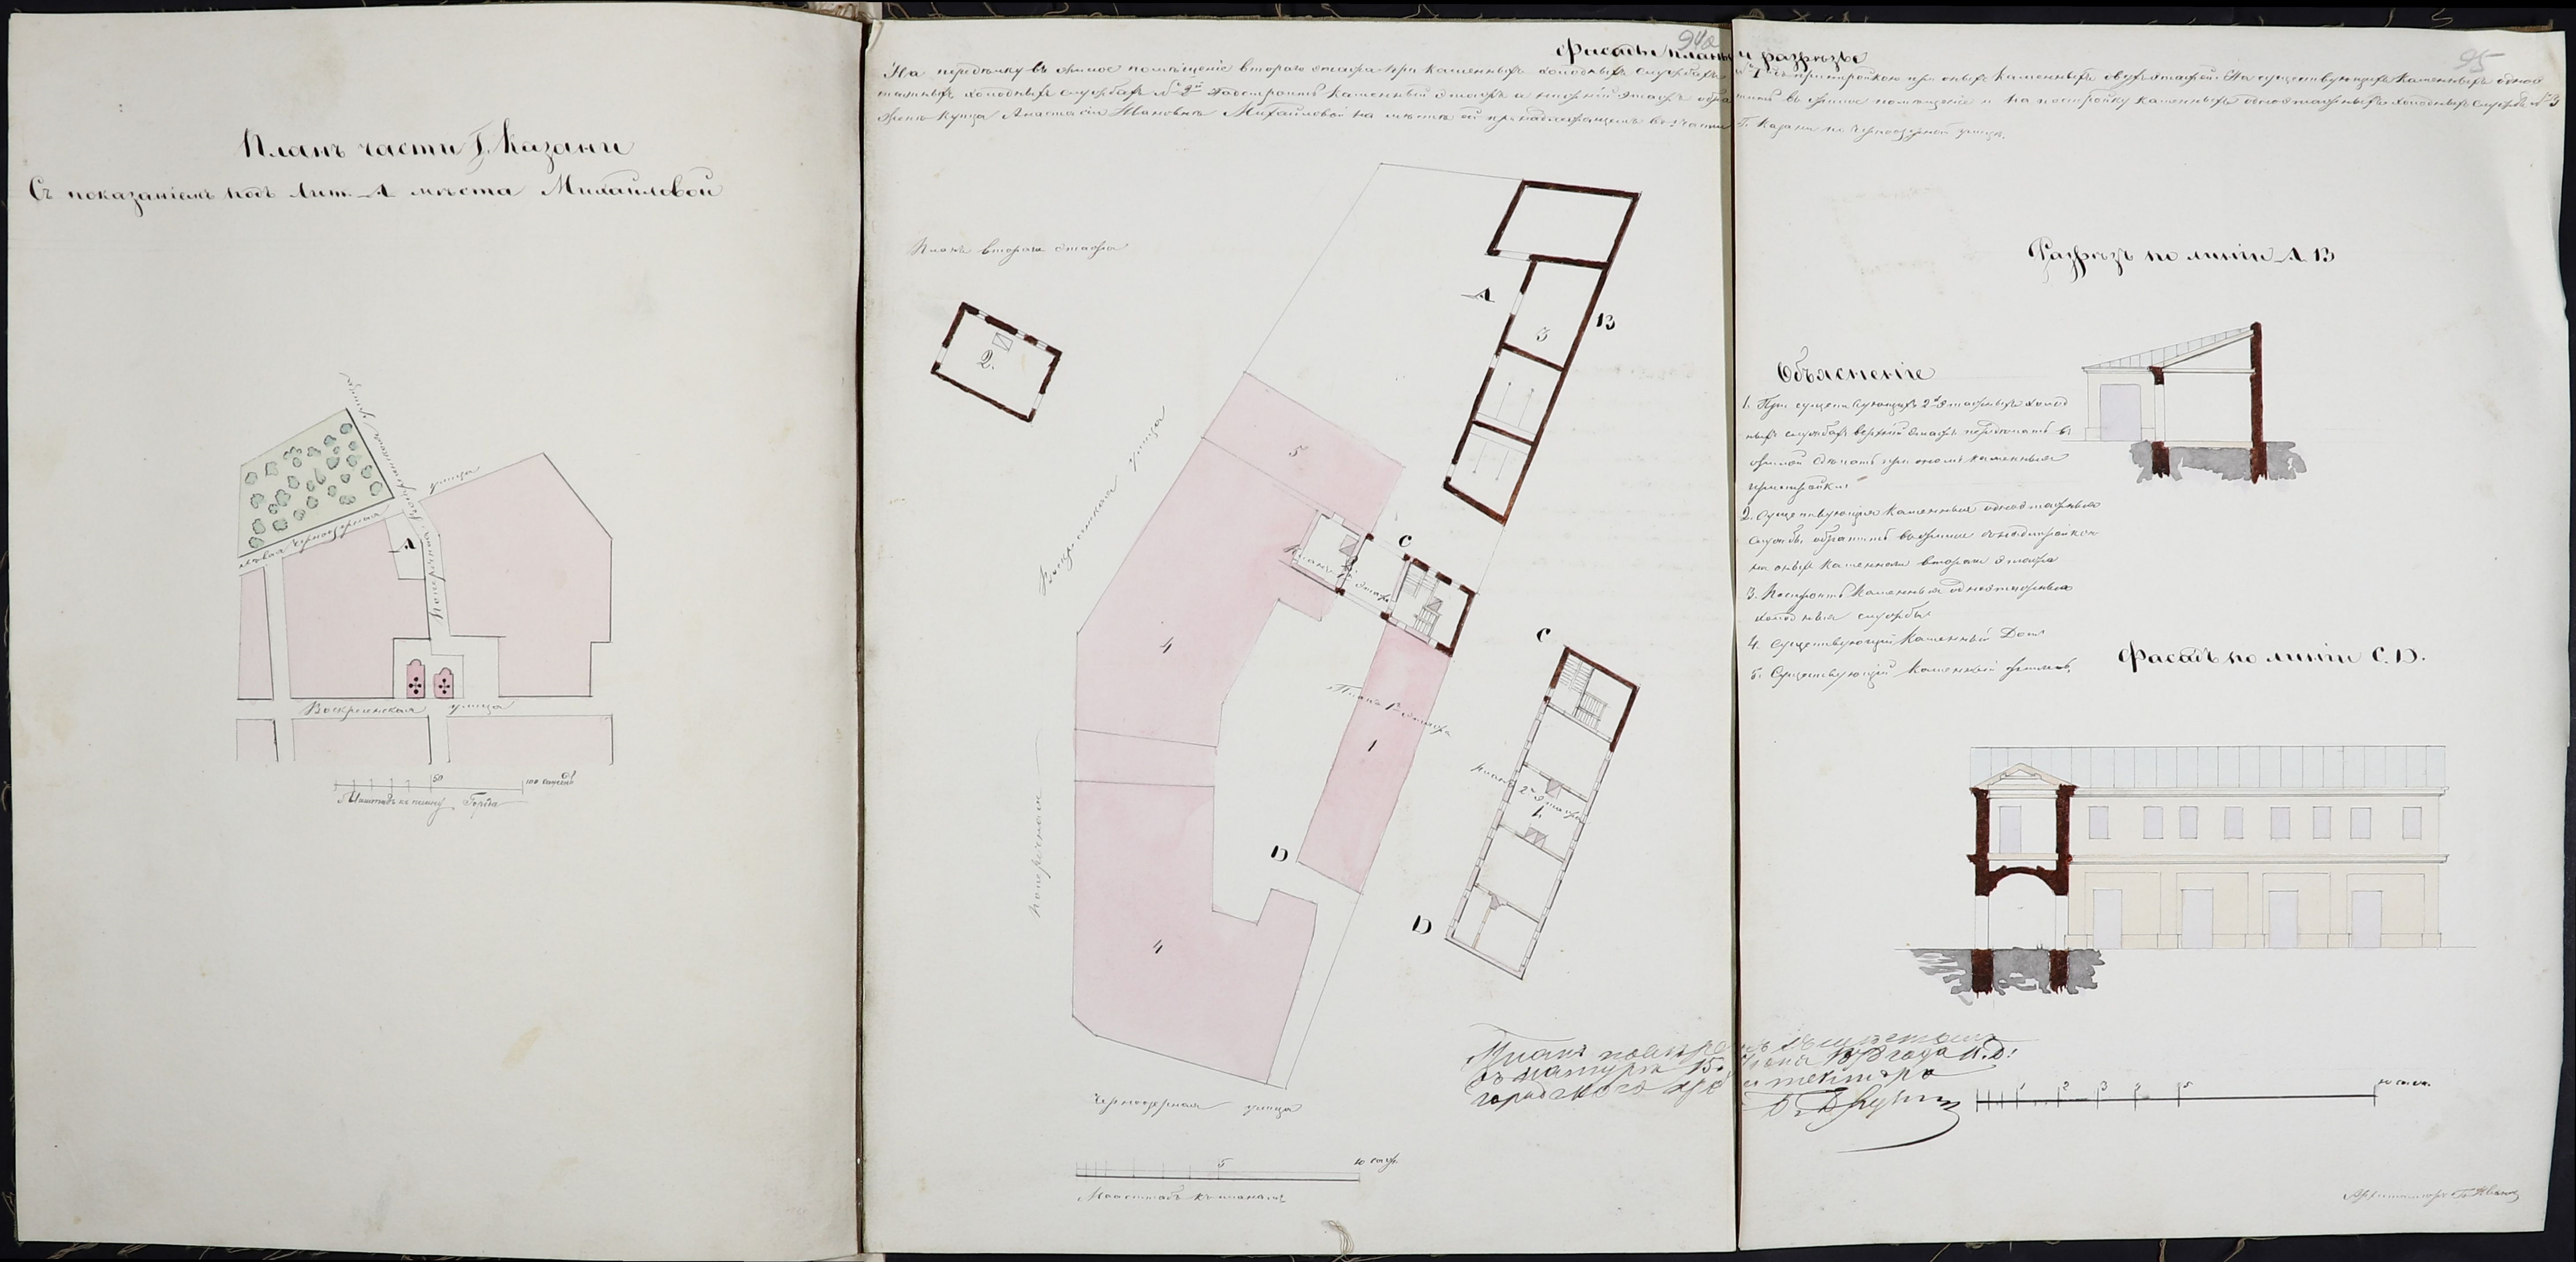 Планъ части Г. Казани
Съ показаніемъ подъ Лит. А мѣста Михайловой
улица
улица
Лѣвая Черноозерная
А
Поперечно
Воскресенская улица
50
100 саженъ
Масштабъ къ плану Города
94а
95
Фасадъ планы и разрѣзъ
На передѣлку въ жилое помѣщеніе втораго этажа при каменныхъ холодныхъ службахъ №1 съ пристройкою при оныхъ каменныхъ двухъэтажн. На существующихъ каменныхъ одно
этажныхъ холодныхъ службахъ №2й надстроить каменный этажъ а нижній этажъ обратить въ жилое помѣщеніе и на постройку каменныхъ одноэтажныхъ холодныхъ службъ №3
жены купца Анастасіи Ивановны Михайловой на мѣстѣ ей принадлежащемъ во части Г. Казани по Черноозерной улицѣ.
Планъ втораго этажа
2.
А
В
3
5
Поперечная
улица
С
4
Планъ 1го этажа
1
D
4
С
Планъ
2го этажа
1.
D
Черноозерная улица
5
10 саж.
Масштабъ къ планамъ
Разрѣзъ по линіи А В
Объясненіе
1. При существующихъ 2хъ этажныхъ холод
ныхъ службахъ верхній этажъ передѣлать въ
жилой сдѣлать при ономъ каменныя
пристройки.
2. Существующія каменныя одноэтажныя
службы обратить въ жилые съ надстройкою
на оныхъ каменнаго втораго этажа
3. Построить каменныя одноэтажныя
холодныя службы
4. Существующій каменный Домъ
5. Существующій каменный флигель
Фасадъ по линіи С. D.
Планъ повѣренъ
въ натурѣ 15 1878 года И.Д.
городскаго архитектора
1 2 3 4 5
10 саж.
Архитекторъ П.